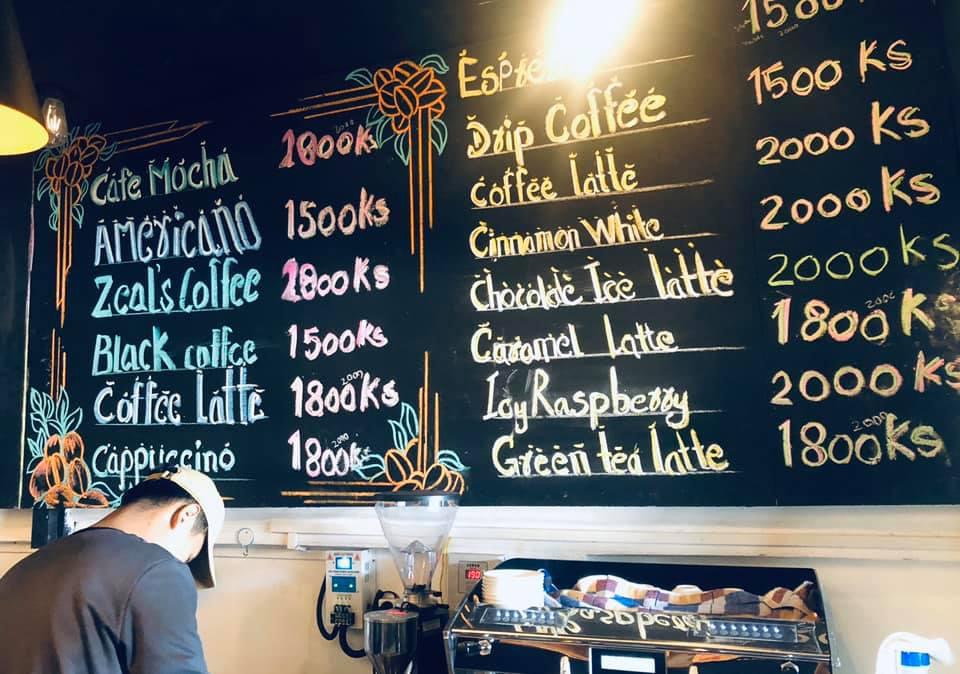 Cafe Mocha 1800Ks 2000
Americano 1500Ks
Zeal's Coffee 2800Ks
Black coffee 1500Ks
Coffee Latte 1800Ks 2000
Cappuccino 1800Ks 2000
1500
Drip Coffee 1500 Ks
Coffee latte 2000 Ks
Cinnamon White 2000 Ks
Chocolate Ice latte 2000 Ks
Caramel Latte 1800 Ks 2000
Icy Raspberry 2000 Ks
Green tea latte 1800Ks 2000